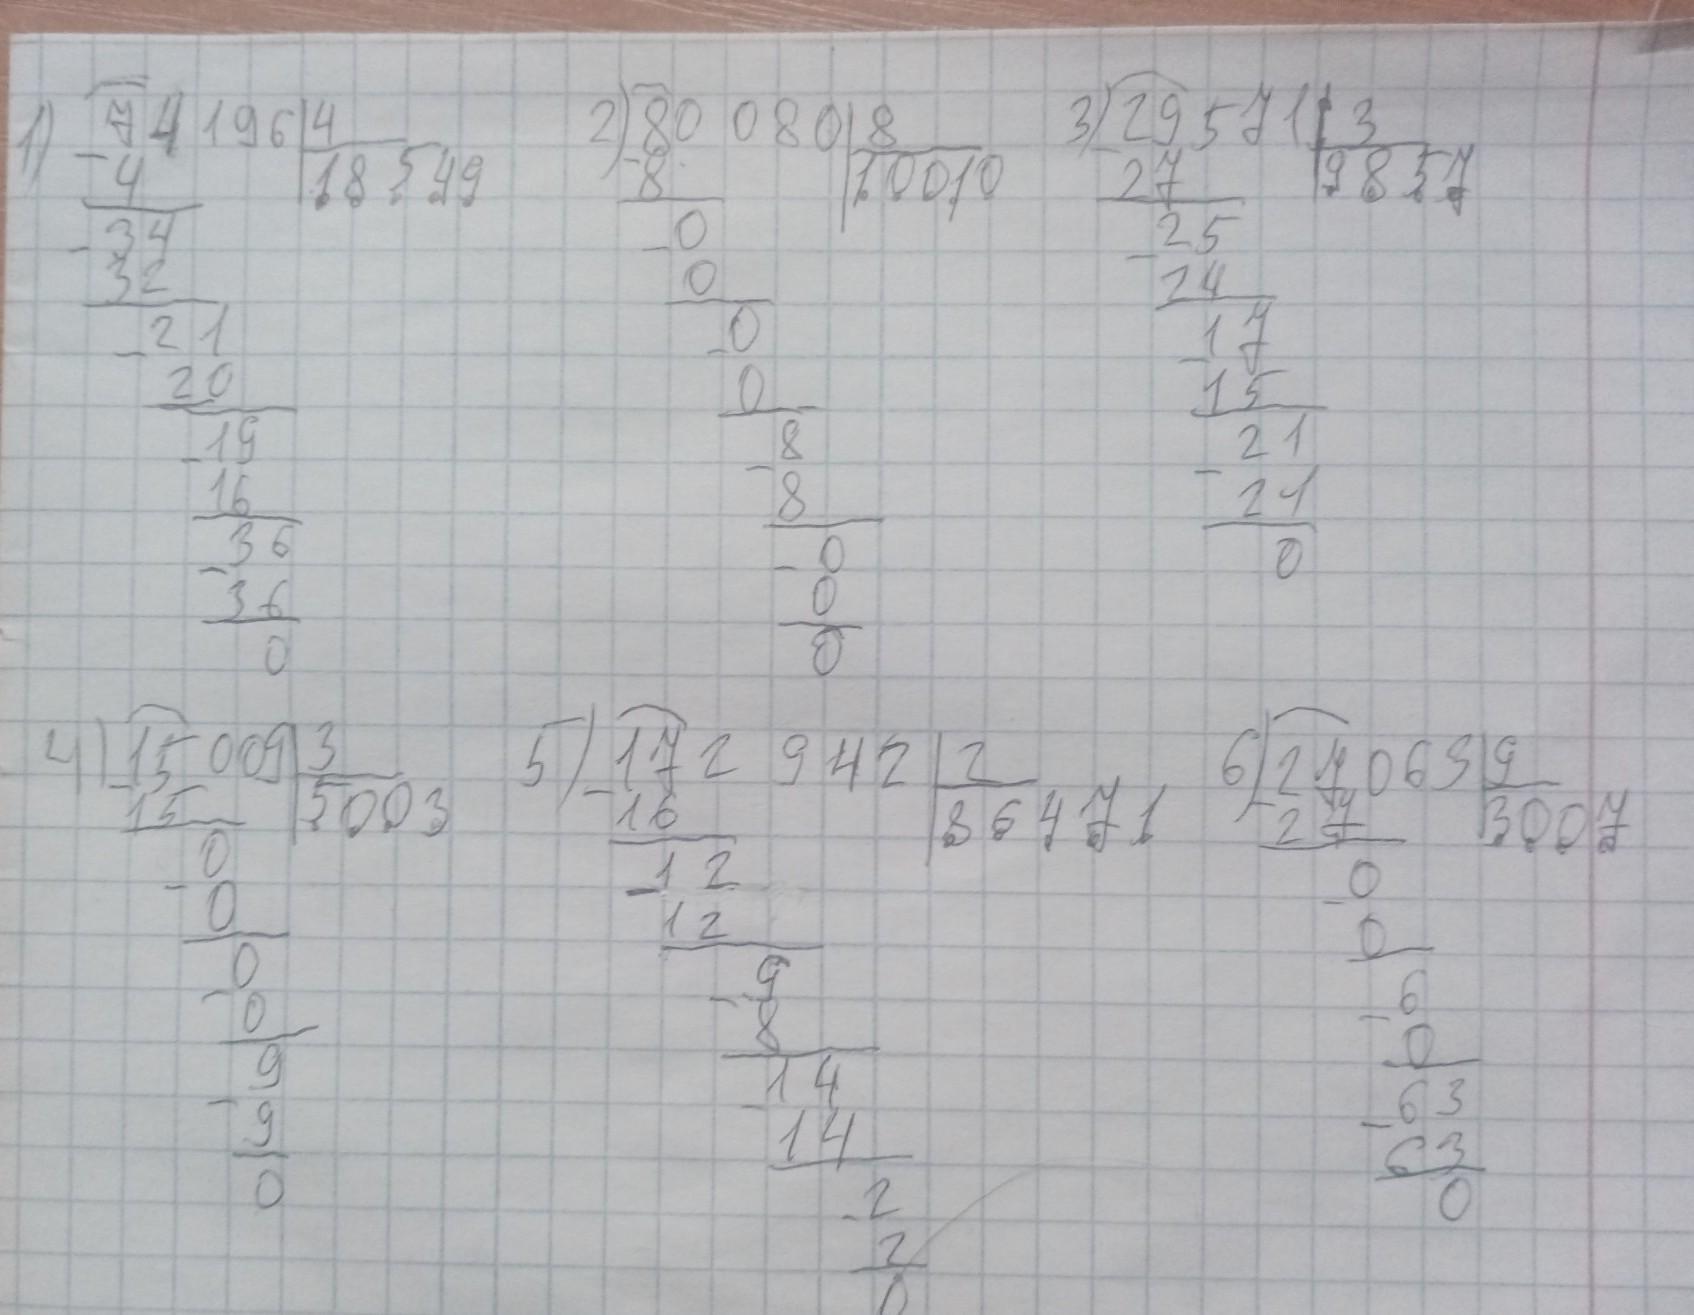 1) 74 196 | 4
- 4 | 18 549
- 34
32
- 21
20
- 19
16
- 36
36
0
2) 80 080 | 8
- 8 | 10010
- 0
0
- 0
0
- 8
8
- 0
0
0
3) 29571 | 3
- 27 | 9857
- 25
24
- 17
15
- 21
21
0
4) 15009 | 3
- 15 | 5003
- 0
0
- 0
0
- 9
9
0
5) 172 942 | 2
- 16 | 86471
- 12
12
- 9
8
- 14
14
- 2
2
0
6) 27063 | 9
- 27 | 3007
- 0
0
- 6
0
- 63
63
0